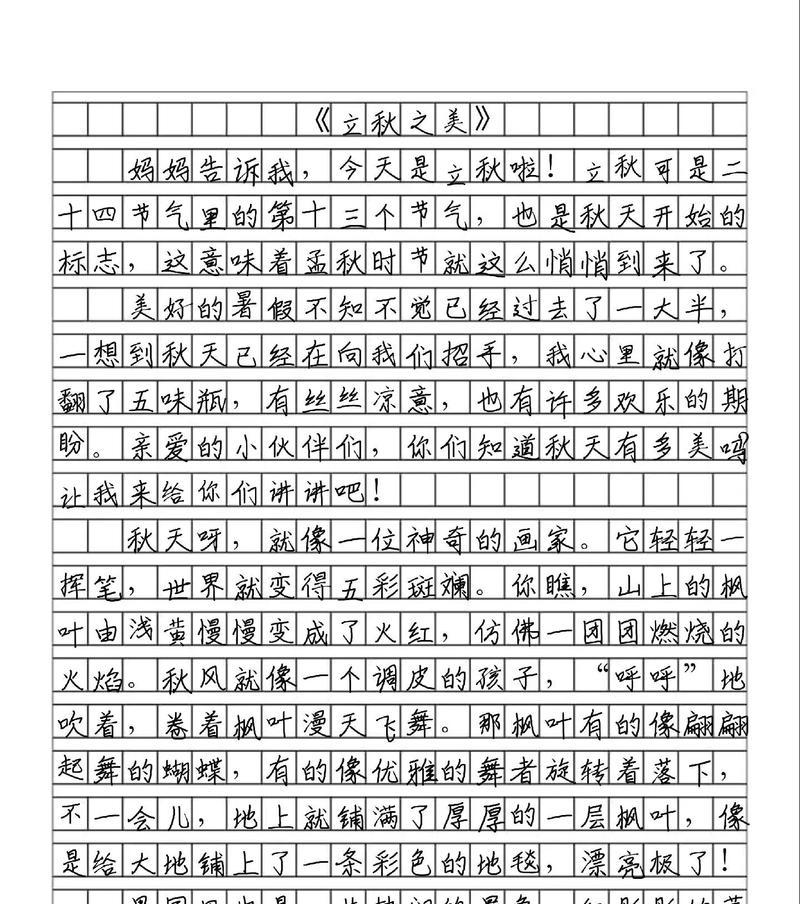 《立秋之美》
妈妈告诉我，今天是立秋啦！立秋可是二
十四节气里的第十三个节气，也是秋天开始的
标志，这意味着孟秋时节就这么悄悄到来了。
美好的暑假不知不觉已经过去了一大半，
一想到秋天已经在向我们招手，我心里就像打
翻了五味瓶，有丝丝凉意，也有许多欢乐的期
盼。亲爱的小伙伴们，你们知道秋天有多美吗
让我来给你们讲讲吧！
秋天呀，就像一位神奇的画家。它轻轻一
挥笔，世界就变得五彩斑斓。你瞧，山上的枫
叶由浅黄慢慢变成了火红，仿佛一团团燃烧的
火焰。秋风就像一个调皮的孩子，“呼呼”地
吹着，卷着枫叶漫天飞舞。那枫叶有的像翩翩
起舞的蝴蝶，有的像优雅的舞者旋转着落下，
不一会儿，地上就铺满了厚厚的一层枫叶，像
是给大地铺上了一条彩色的地毯，漂亮极了！